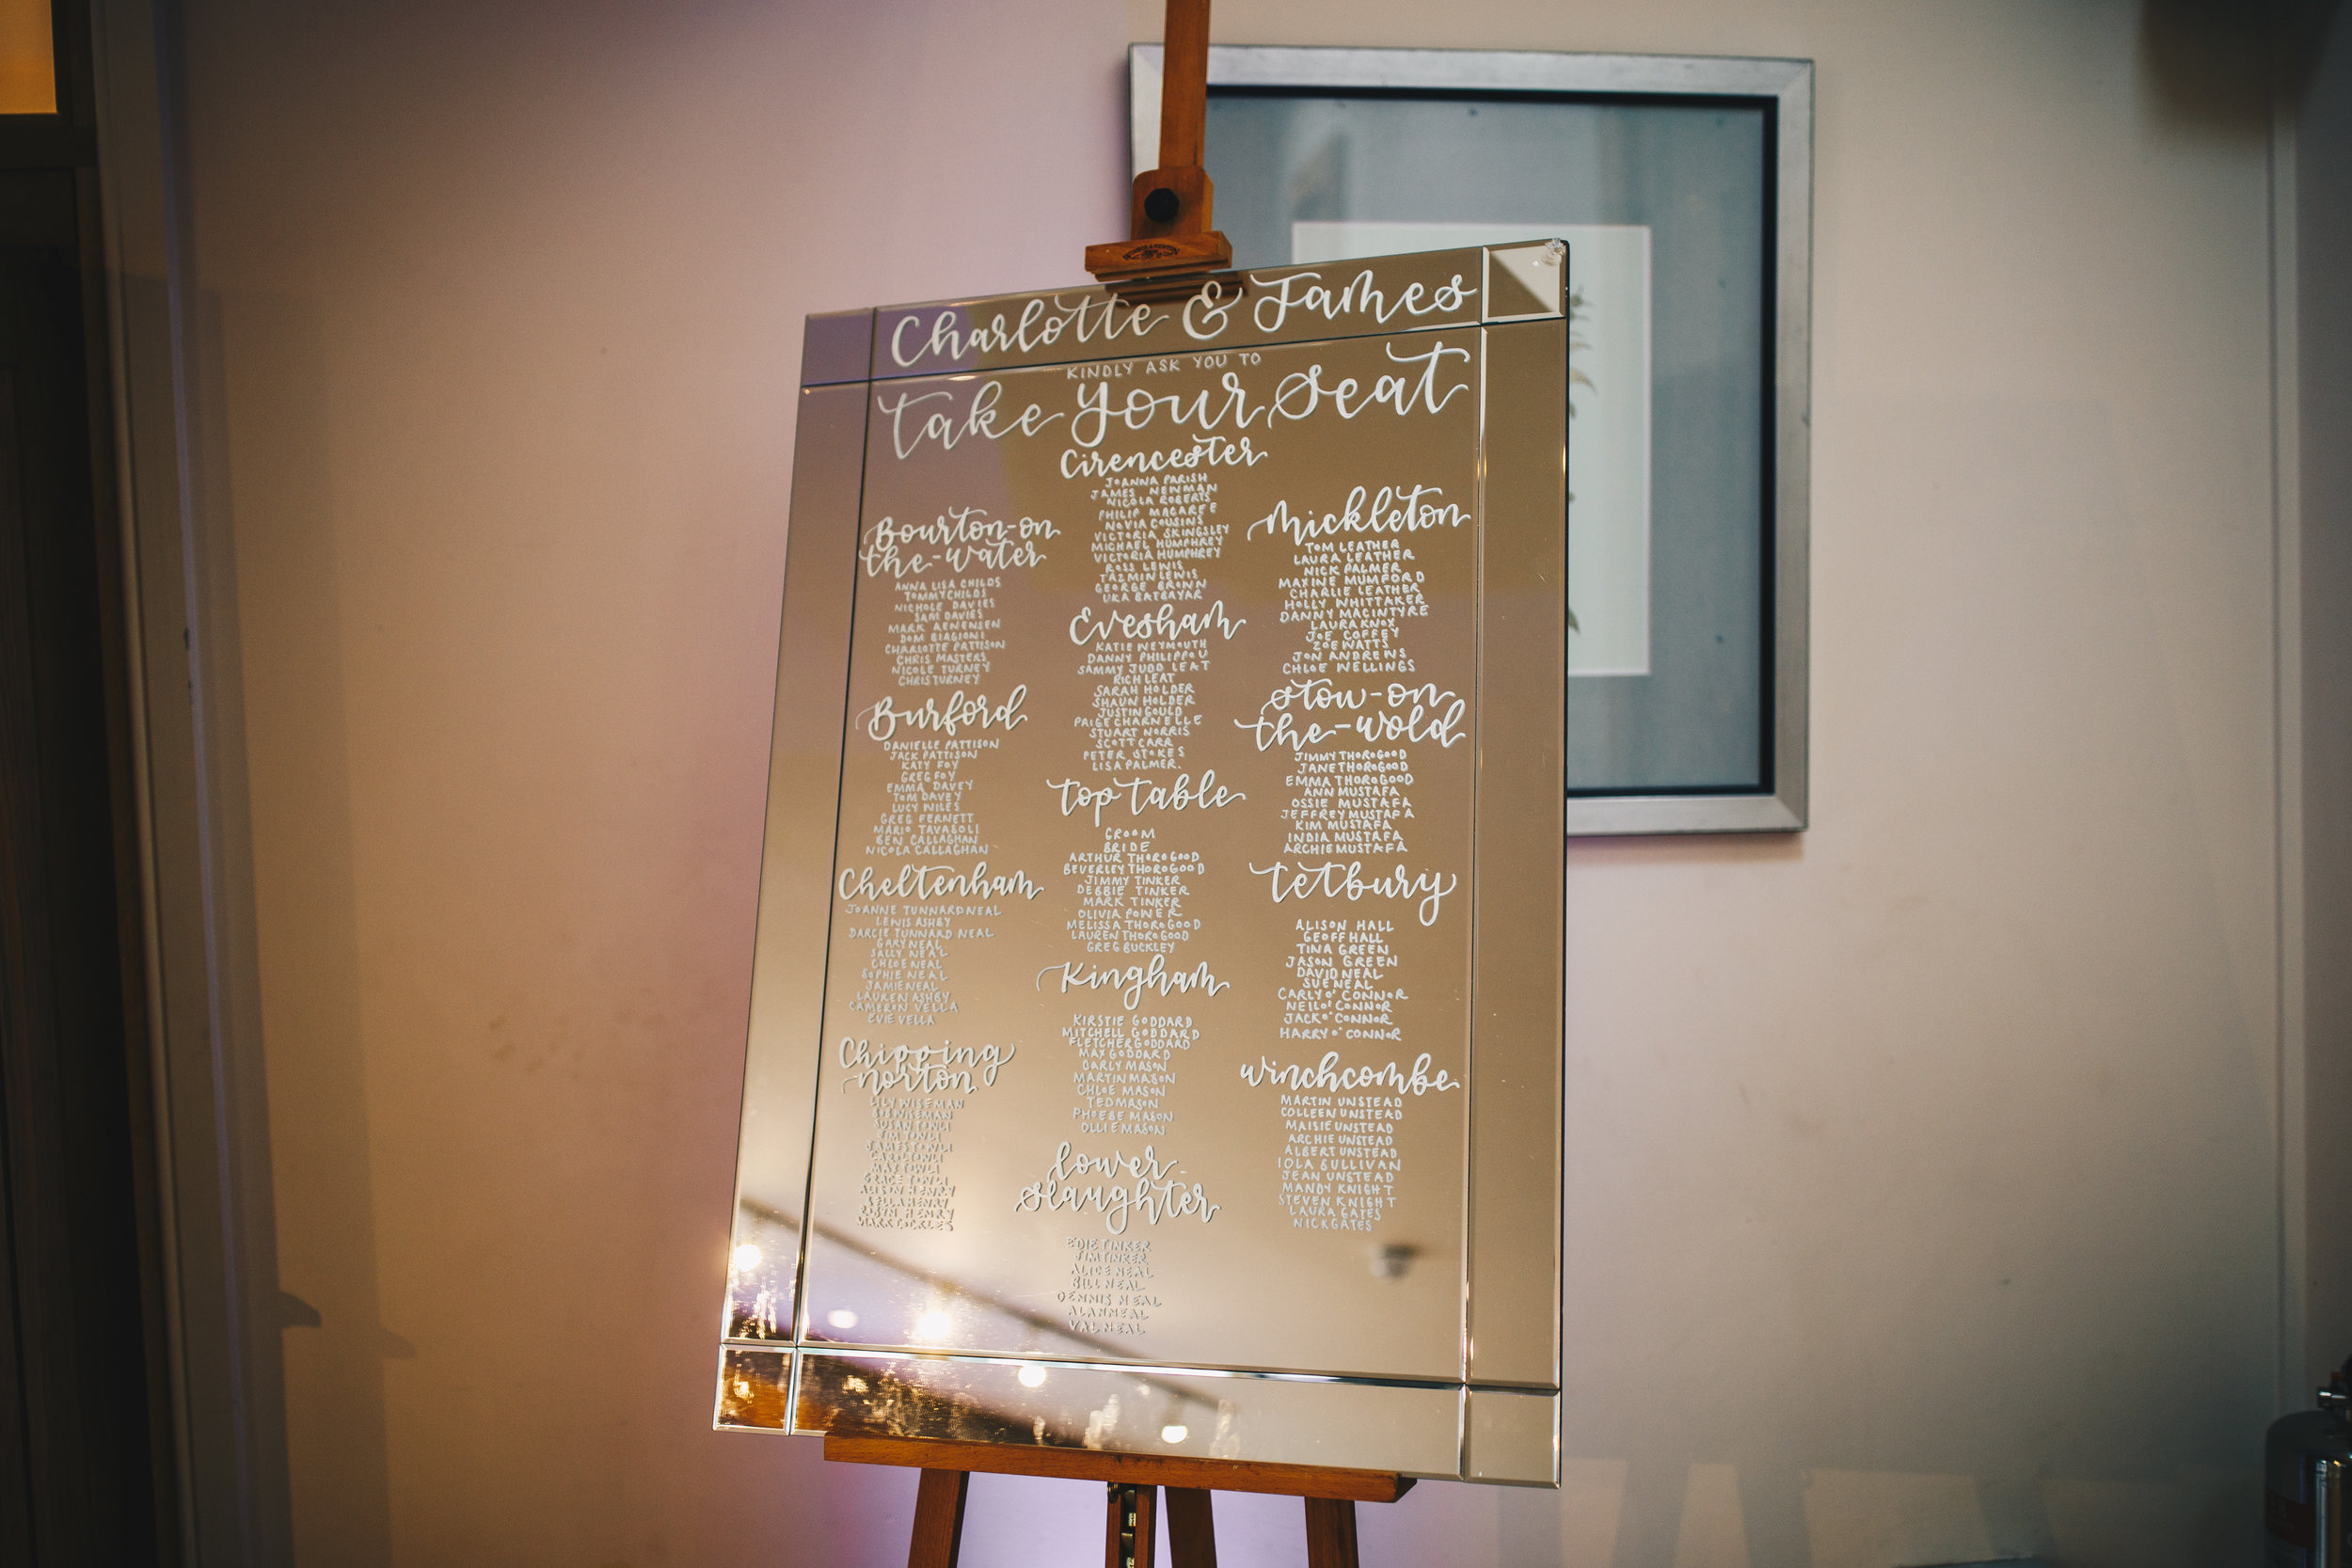 Charlotte & James
KINDLY ASK YOU TO
Take Your Seat
Bourton-on
the-water
ANNA LISA CHILDS
TOMMY CHILDS
NICHOLE DAVIES
SAM DAVIES
MARK
DOM BIAGIONI
CHARLOTTE PATTISON
CHRIS MASTERS
NICOLE TURNEY
CHRIS TURNEY
Burford
DANIELLE PATTISON
JACK PATTISON
KATY FOY
GREG FOY
EMMA DAVEY
TOM DAVEY
LUCY WILES
GREG FERNETT
MARIO TAVASOLI
BEN CALLAGHAN
NICOLA CALLAGHAN
Cheltenham
JOANNE TUNNARD NEAL
LEWIS ASHBY
DARCIE TUNNARD NEAL
GARY NEAL
SALLY NEAL
CHLOE NEAL
SOPHIE NEAL
JAMIE NEAL
LAUREN ASHBY
CAMERON VELLA
EVIE VELLA
Chipping
norton
LILY WISEMAN
WISEMAN
SUSAN TOWLI
TIM TOWLI
JAMES TOWLI
CAROL TOWLI
MAY TOWLI
GRACE TOWLI
ALISON HENRY
BELLA HENRY
ROBYN HENRY
MARK
Cirencester
JOANNA PARISH
JAMES NEWMAN
NICOLA ROBERTS
PHILIP MACAREE
NOVIA COUSINS
VICTORIA SKINGSLEY
MICHAEL HUMPHREY
VICTORIA HUMPHREY
ROSS LEWIS
TAZMIN LEWIS
GEORGE BROWN
UKA BATBAYAR
Evesham
KATIE WEYMOUTH
DANNY PHILIPPOU
SAMMY JUDD LEAT
RICH LEAT
SARAH HOLDER
SHAUN HOLDER
JUSTIN GOULD
PAIGE CHARNELLE
STUART NORRIS
SCOTT CARR
PETER STOKES
LISA PALMER.
top table
GROOM
BRIDE
ARTHUR THOROGOOD
BEVERLEY THOROGOOD
JIMMY TINKER
DEBBIE TINKER
MARK TINKER
OLIVIA POWER
MELISSA THOROGOOD
LAUREN THOROGOOD
GREG BUCKLEY
Kingham
KIRSTIE GODDARD
MITCHELL GODDARD
FLETCHER GODDARD
MAX GODDARD
CARLY MASON
MARTIN MASON
CHLOE MASON
TED MASON
PHOEBE MASON
OLLIE MASON
lower
slaughter
EDIE TINKER
JIM TINKER
ALICE NEAL
BILL NEAL
DENNIS NEAL
ALAN NEAL
VAL NEAL
Mickleton
TOM LEATHER
LAURA LEATHER
NICK PALMER
MAXINE MUMFORD
CHARLIE LEATHER
HOLLY WHITTAKER
DANNY MACINTYRE
LAURA KNOX
JOE COFFEY
ZOE WATTS
JON ANDREWS
CHLOE WELLINGS
stow-on
the-wold
JIMMY THOROGOOD
JANE THOROGOOD
EMMA THOROGOOD
ANN MUSTAFA
OSSIE MUSTAFA
JEFFREY MUSTAFA
KIM MUSTAFA
INDIA MUSTAFA
ARCHIE MUSTAFA
tetbury
ALISON HALL
GEOFF HALL
TINA GREEN
JASON GREEN
DAVID NEAL
SUE NEAL
CARLY O'CONNOR
NEIL O'CONNOR
JACK O'CONNOR
HARRY O'CONNOR
winchcombe
MARTIN UNSTEAD
COLLEEN UNSTEAD
MAISIE UNSTEAD
ARCHIE UNSTEAD
ALBERT UNSTEAD
IOLA SULLIVAN
JEAN UNSTEAD
MANDY KNIGHT
STEVEN KNIGHT
LAURA GATES
NICK GATES